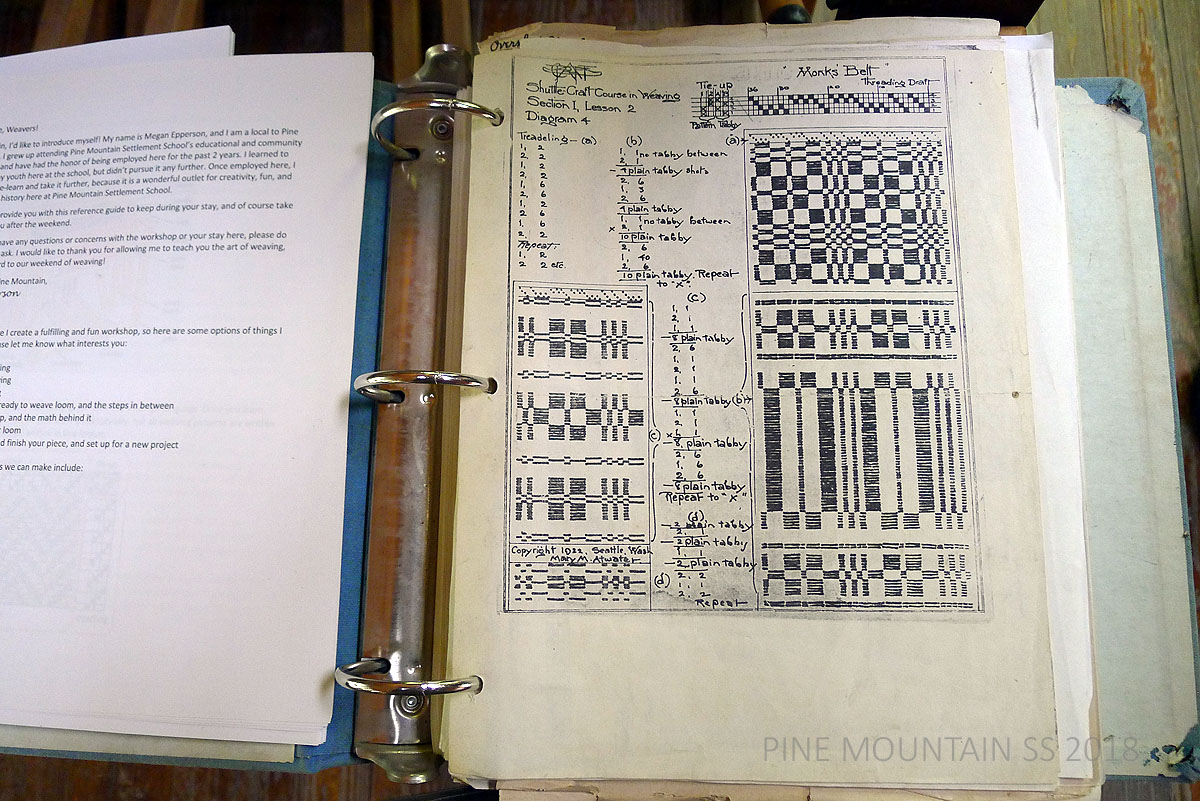 , Weavers!
n, I'd like to introduce myself! My name is Megan Epperson, and I am a local to Pine
. I grew up attending Pine Mountain Settlement School's educational and community
and have had the honor of being employed here for the past 2 years. I learned to
y youth here at the school, but didn't pursue it any further. Once employed here, I
e-learn and take it further, because it is a wonderful outlet for creativity, fun, and
history here at Pine Mountain Settlement School.
rovide you with this reference guide to keep during your stay, and of course take
u after the weekend.
ave any questions or concerns with the workshop or your stay here, please do
ask. I would like to thank you for allowing me to teach you the art of weaving,
rd to our weekend of weaving!
ine Mountain,
e I create a fulfilling and fun workshop, so here are some options of things I
use let me know what interests you:
ing
ving
g
ready to weave loom, and the steps in between
p, and the math behind it
r loom
d finish your piece, and set up for a new project
s we can make include:
Shuttle-Craft Course in Weaving
Section I, Lesson 2
Diagram 4
Tie-up
Pattern Tabby
"Monks' Belt"
Threading Draft
Treadeling — (a)
1, 2
2, 2
1, 2
2, 2
1, 6
2, 6
1, 2
2, 6
1, 6
2, 2
Repeat:
1, 2
2, 2 etc.
(b)
1, 1 no tabby between
2, 1
4 plain tabby shots
2, 6
1, 3
2, 6
4 plain tabby
1, 1 no tabby between
x 2, 1
10 plain tabby
2, 6
1, 40
2, 6
10 plain tabby. Repeat
to "x"
(a)
(c)
1, 1
2, 1
1, 1
8 plain tabby
2, 6
1, 1
2, 1
1, 1
2, 6
8 plain tabby (b)
1, 1
2, 1
x 1, 1
8 plain tabby
2, 6
1, 6
2, 6
8 plain tabby
Repeat to "x"
(c)
(d)
2 plain tabby
2 plain tabby
1, 1
2 plain tabby
2, 2
1, 1
2, 2
Repeat
(d)
Copyright 1922, Seattle, Wash
Mary M. Atwater
PINE MOUNTAIN SS 2018